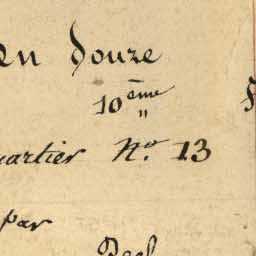 en douze
10ème
"
uartier No. 13
par